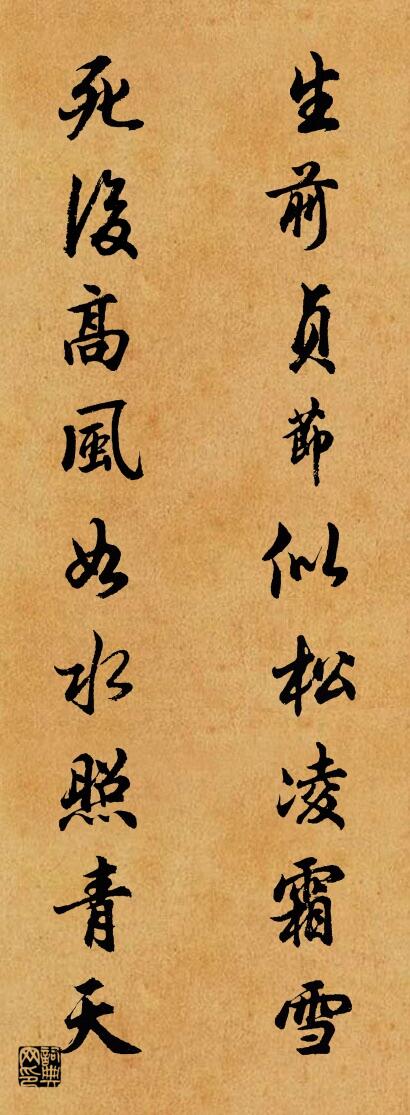 生前貞節似松凌霜雪
死後高風如水照青天
詞典网印